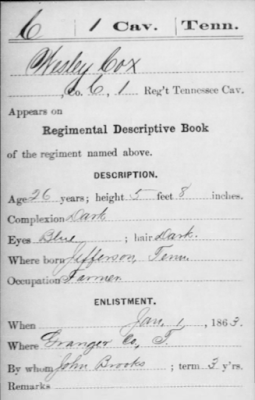 C 1 Cav. Tenn.
Wesley Cox
, Co. C, 1 Reg't Tennessee Cav.
Appears on
Regimental Descriptive Book
of the regiment named above.
DESCRIPTION.
Age 26 years; height 5 feet 8 inches.
Complexion Dark
Eyes Blue ; hair Dark.
Where born Jefferson, Tenn.
Occupation Farmer
ENLISTMENT.
When Jan. 1, 1863.
Where Granger Co, T
By whom John Brooks ; term 3 y'rs.
Remarks